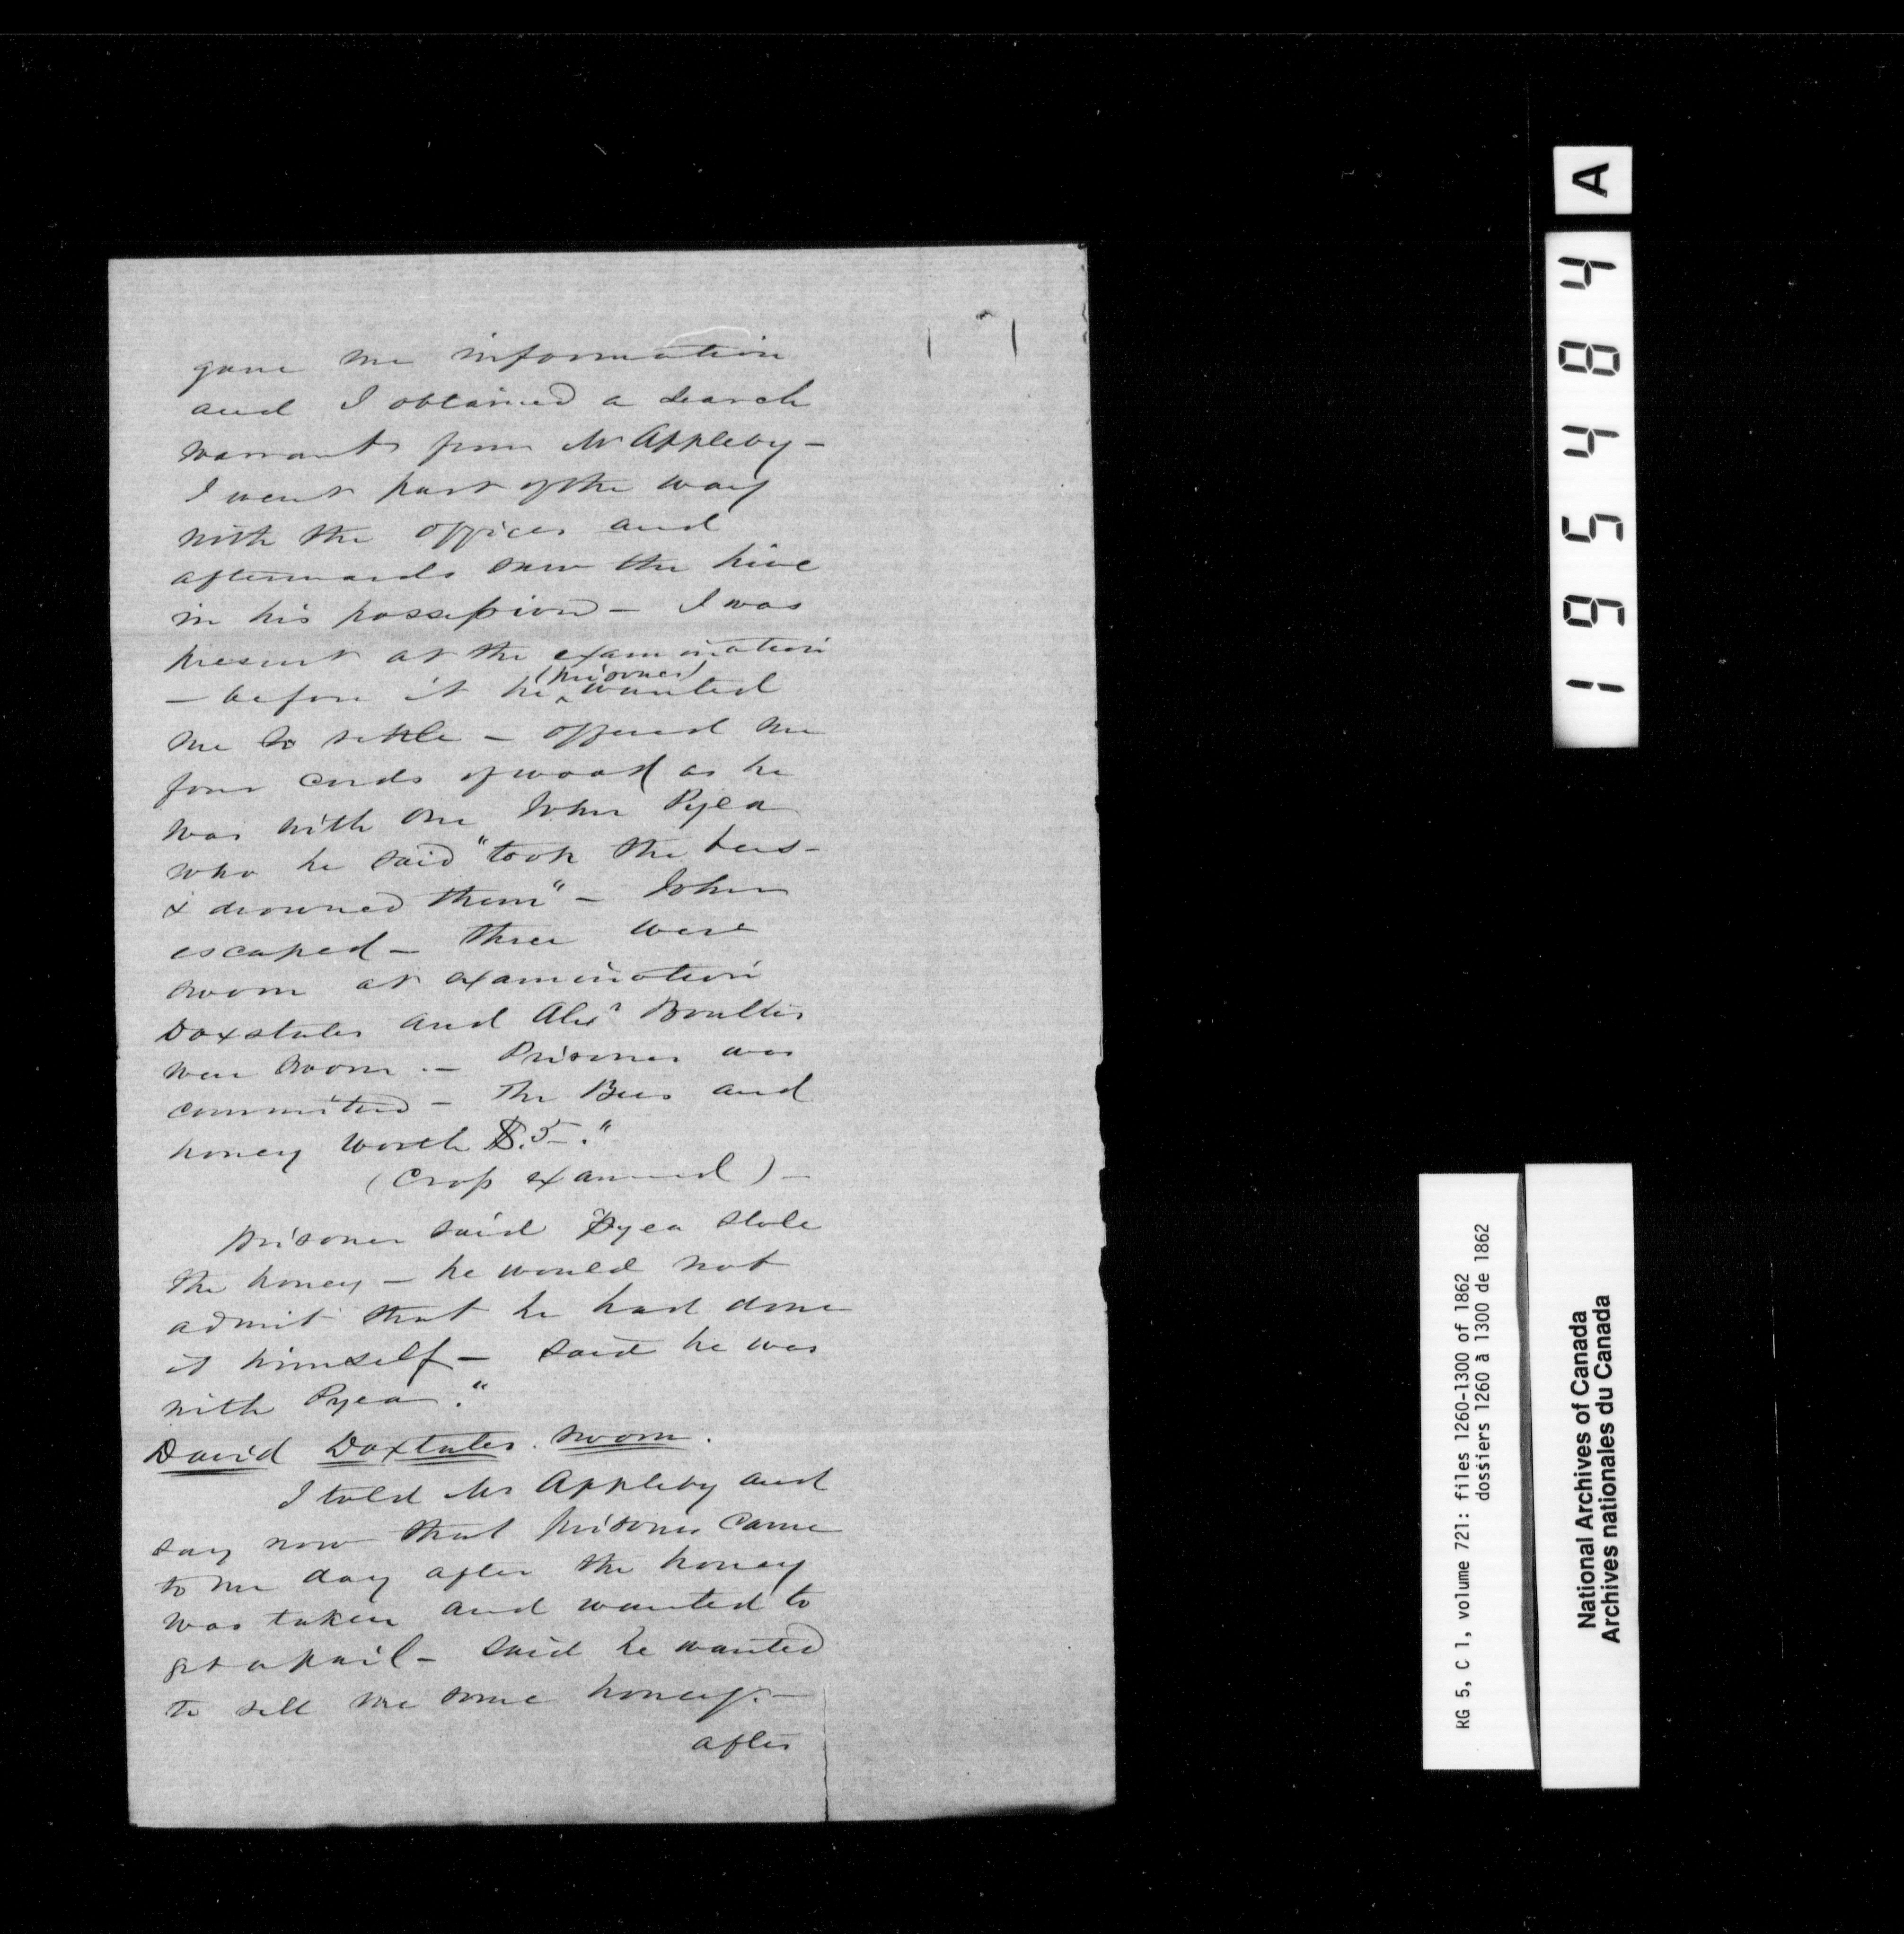 gave me information
and I obtained a search
warrant from Mr Appleby –
I went part of the way
with the officer and
afterwards saw the hive
in his possession – I was
present at the examination
– before it he (prisoner) wanted
me to settle – offered me
four cords of wood as he
was with one John Pyea
who he said "took the bees –
& drowned them" – John
escaped – three were
sworn at examination
Doxstater and Alexr Boulter
were sworn. – Prisoner was
committed – The Bees and
honey worth $5."
(Cross examined) –
prisoner said Pyea stole
the honey – he would not
admit that he had done
it himself – said he was
with Pyea."
David Doxtater. sworn.
I told Mr Appleby and
say now that prisoner came
to me day after the honey
was taken and wanted to
get a pail – said he wanted
to sell me some honey. –
after
A
195484
RG 5, C 1, volume 721: files 1260-1300 of 1862
dossiers 1260 à 1300 de 1862
National Archives of Canada
Archives nationales du Canada